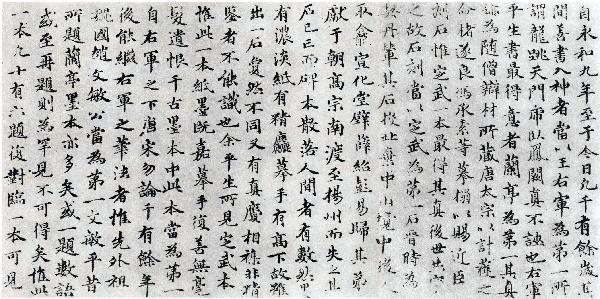 自永和九年至于今日凡千有餘歲其
間善書入神者當以王右軍為第一所
謂龍跳天門虎臥鳳闕真不誣也右軍
平生書最得意者蘭亭為第一其真
跡為隨僧辯材所藏唐太宗以計獲之
命褚遂良馮承素等摹搨以賜近臣
刻石惟定武本最得其真後世共
之故石刻當以定武為第一石晉時為
契丹輦其石投於真中山境中後
取龕宣化堂壁薛紹彭易歸其第
獻于朝高宗南渡至揚州而失之其
石已亡而碑本散落人間者有數然
有濃淡紙有精麤摹手有高下故雖
出一石夐然不同又有真贗相雜非精
鑒者不能識也余平生所見定武本
惟此一本紙墨既嘉摹手復善無毫
髮遺恨千古墨本中此本當為第一
自右軍之下唐宋勿論千有餘年
後能繼右軍之筆法者惟先外祖
魏國趙文敏公當為第一文敏平昔
所題蘭亭墨本亦多矣或一題數語
或至再題則為罕見不可得矣惟此
一本凡十有六題復對臨一本可見